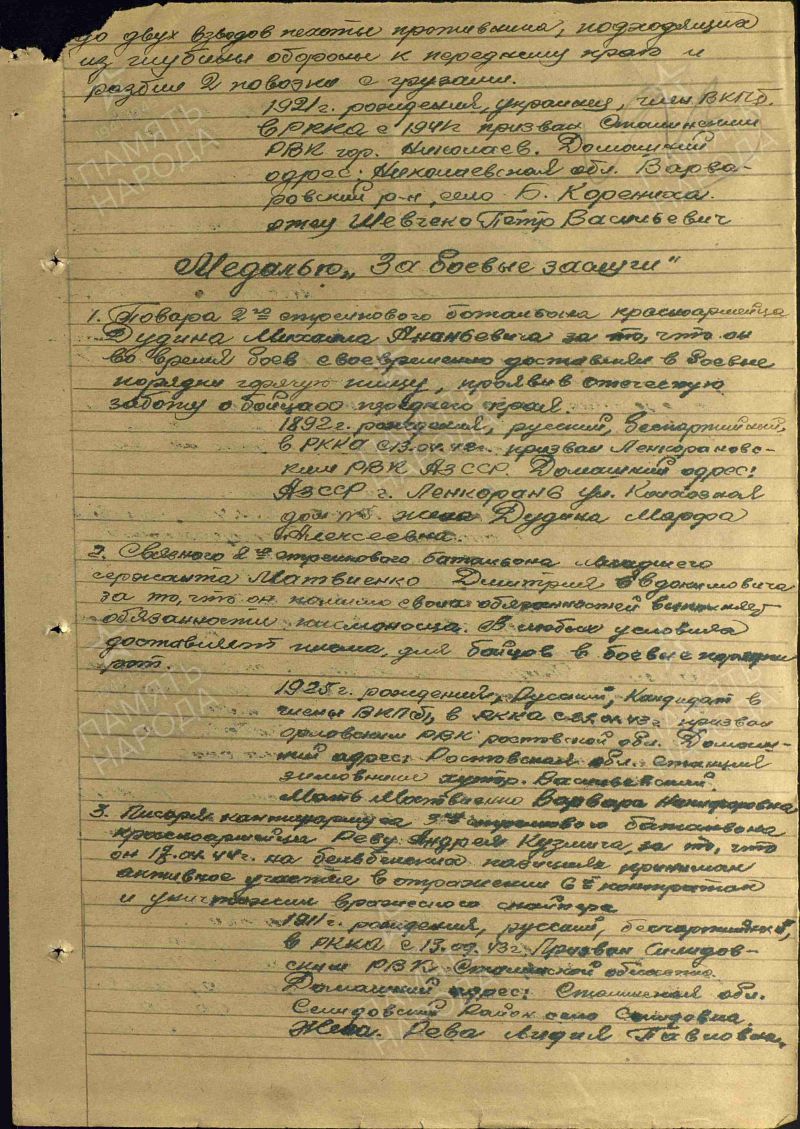 до двух взводов пехоты противника, подходящих
из глубины обороны к переднему краю и
разбил 2 повозки с грузами.
1921 г. рождения, украинец, член ВКПб.
в РККА с 1941 г призван Сталинским
РВК гор. Николаев. Домашний
адрес: Николаевская обл. Варва-
ровский р-н, село Б. Корениха.
отец Шевченко Петр Васильевич
Медалью „За боевые заслуги"
1. Повара 2го стрелкового батальона красноармейца
Дудина Михаила Ананьевича за то, что он
во время боев своевременно доставлял в боевые
порядки горячую пищу, проявив отеческую
заботу о бойцах переднего края.
1892 г. рождения, русский, беспартийный,
в РККА с 13.04.42г. призван Ленкорановс-
ким РВК АзССР. Домашний адрес:
АзССР г. Ленкорань ул. Колхозная
дом жена Дудина Марфа
Алексеевна.
2. Связного 2го стрелкового батальона младшего
сержанта Матвиенко Дмитрия Евдокимовича
за то, что он помимо своих обязанностей выполняет
обязанности письмоносца. В любых условиях
доставляет письма, для бойцов в боевые порядки
рот.
1925 г. рождения, Русский, Кандидат в
члены ВКПб, в РККА с 43г призван
орловским РВК ростовской обл. Домаш-
ний адрес: Ростовская обл. станция
зимовники хутор. Васильевский.
Мать Матвиенко Варвара Никифоровна
3. Писаря 3го стрелкового батальона
красноармейца Реву Андрея Кузмича, за то, что
он 17.04.44г. на бельбекских позициях принимал
активное участие в отражении 6ти контратак
и уничтожил вражеского снайпера
1911 г. рождения, русский, беспартийный,
в РККА с 13.09.43г. Призван Селидов-
ским РВК Сталинской области.
Домашний адрес: Сталинская обл.
Селидовский Район село Селидовка.
Жена. Рева Лидия Павловна.
ПАМЯТЬ НАРОДА
ПАМЯТЬ НАРОДА
ПАМЯТЬ НАРОДА